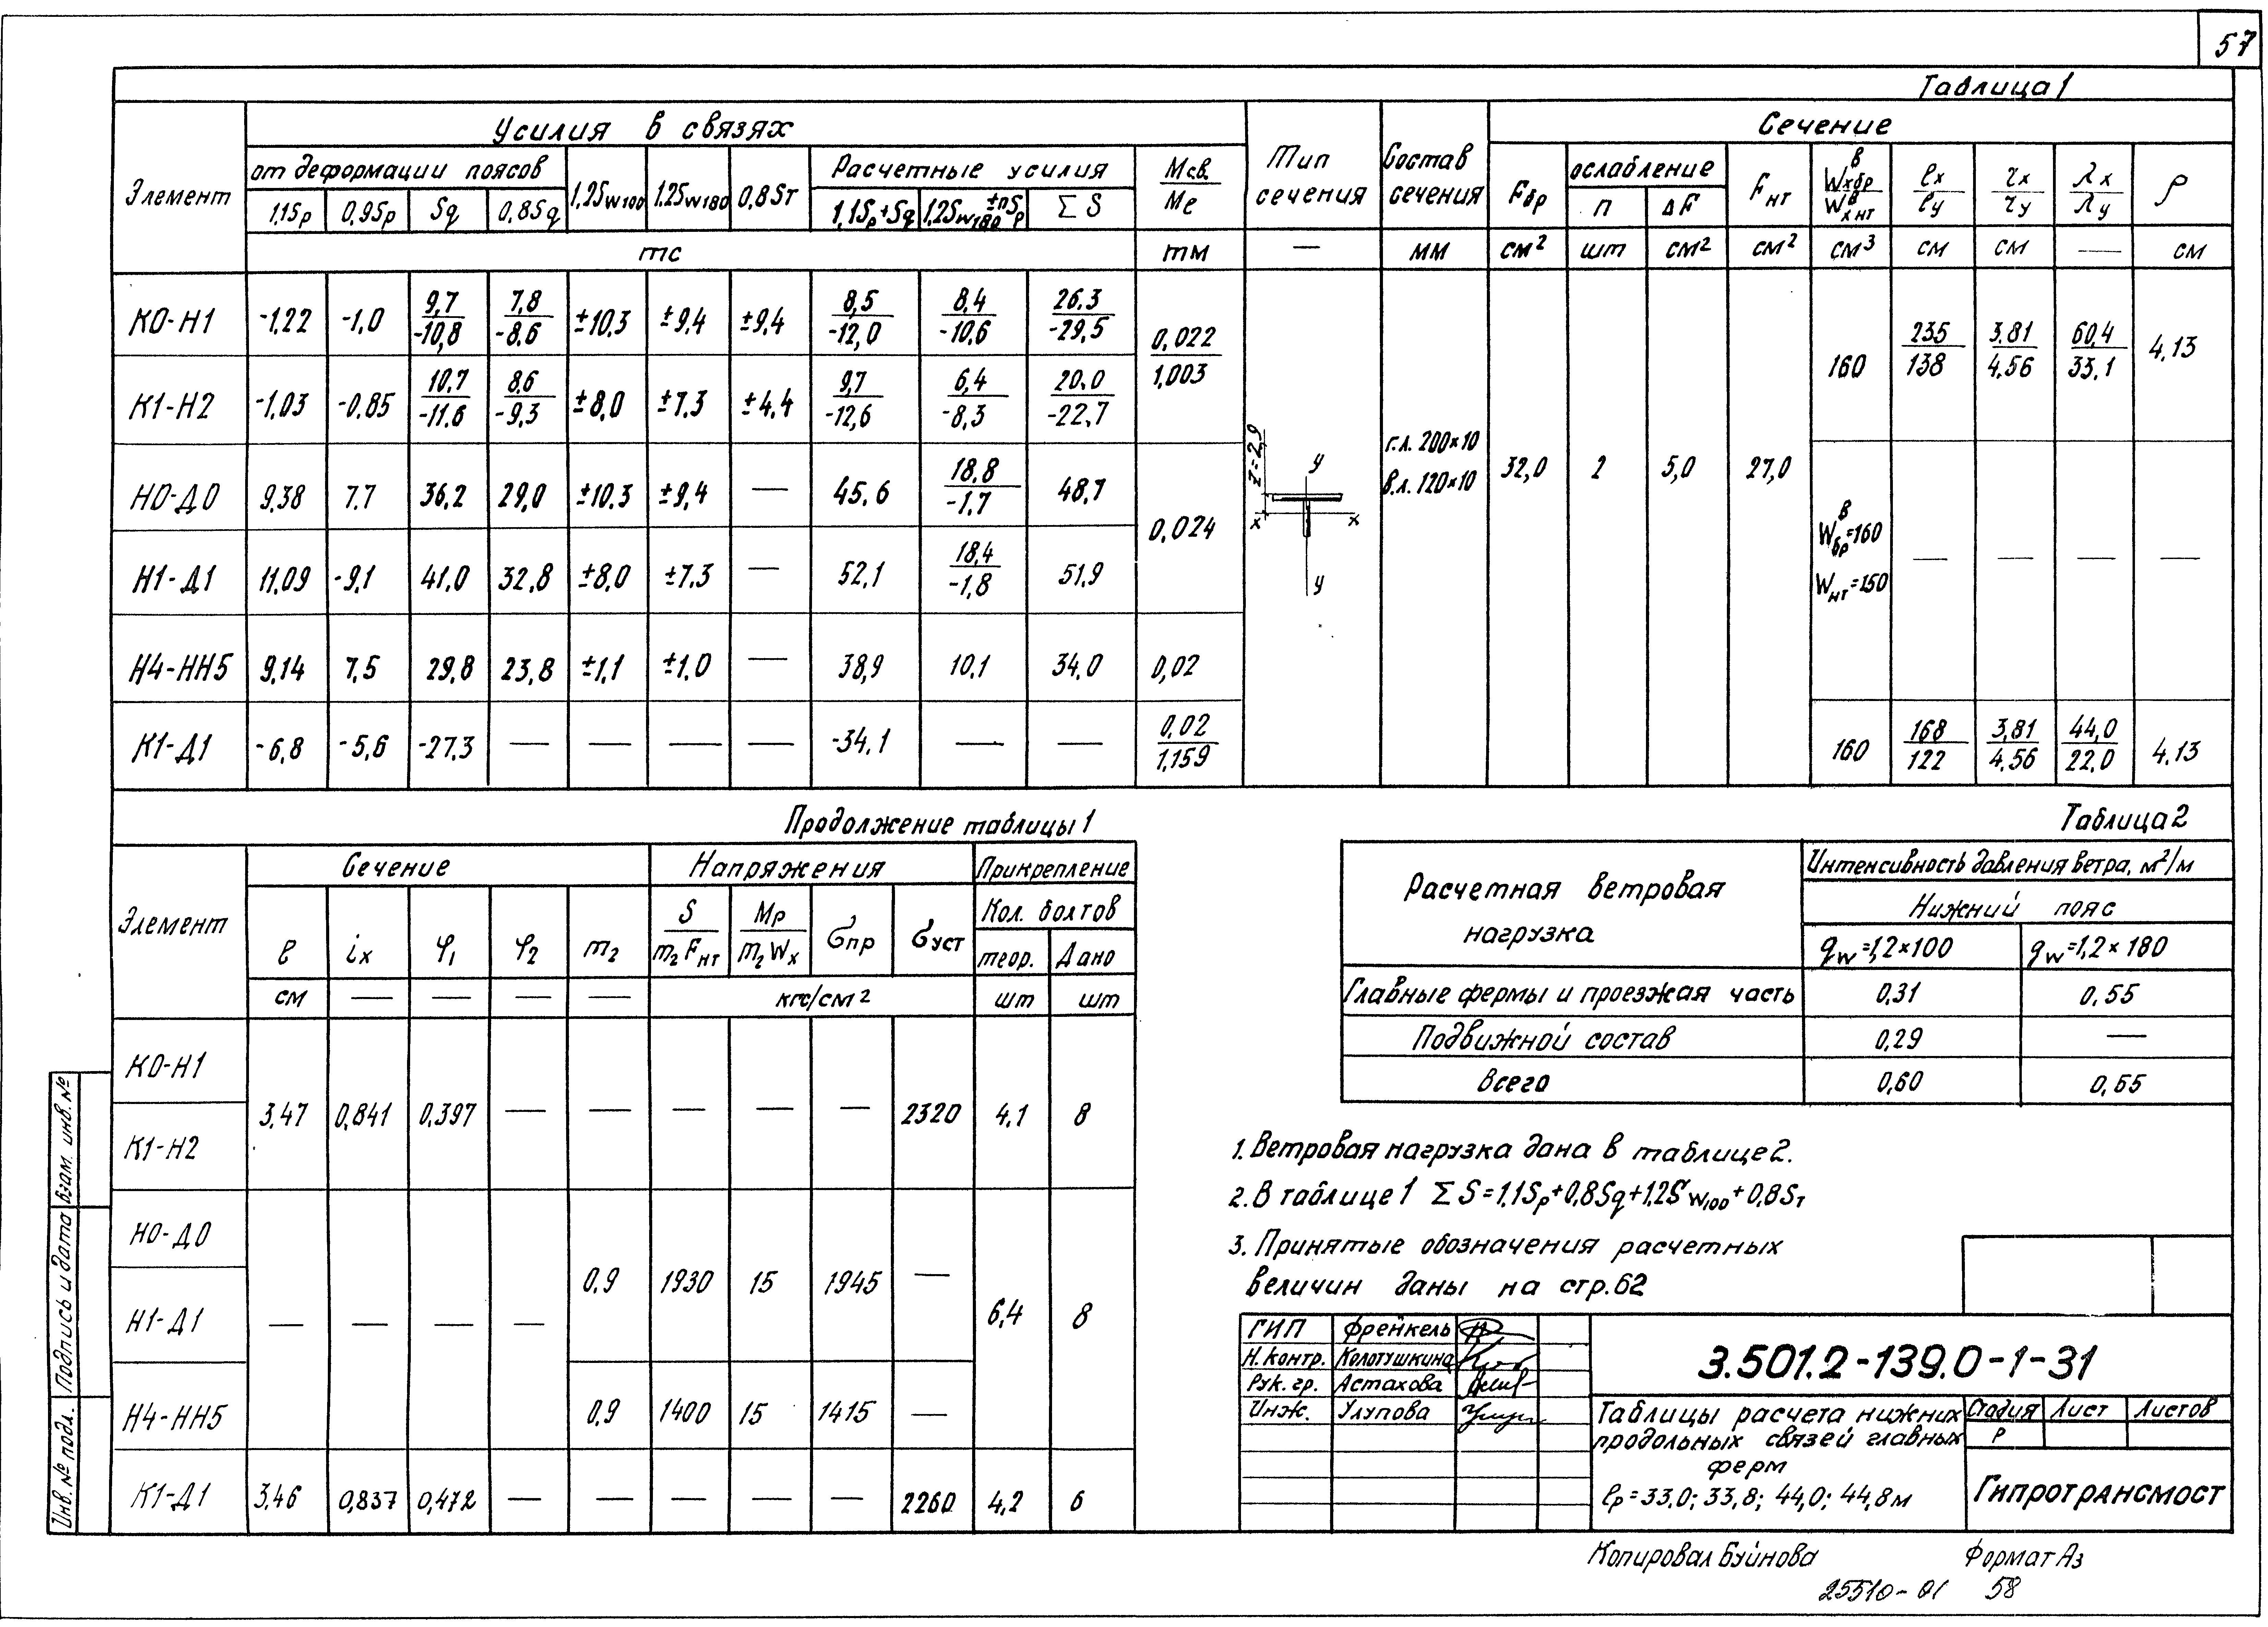 57
Таблица 1
Элемент
Усилия в связях
Тип сечения
Состав сечения
Сечение
от деформации поясов
1,2S W100
1.2S W180
0,8Sт
Расчетные усилия
Mсв. / Mе
Fбр
ослабление
Fнт
Wхбр в / Wх нт в
ℓx / ℓy
τx / τy
λx / λy
ρ
1,1Sp
0,9Sp
Sq
0,8Sq
1,1Sp+Sq
1,2S W180 ±nSp
Σ S
п
ΔF
тс
тм
—
мм
см²
шт
см²
см²
см³
см
см
—
см
К0-Н1 -1,22 -1,0 9,7/-10,8 7,8/-8,6 ±10,3 ±9,4 ±9,4 8,5/-12,0 8,4/-10,6 26,3/-29,5
0,022/1,003
160 235/138 3,81/4,56 60,4/33,1 4,13
К1-Н2 -1,03 -0,85 10,7/-11,6 8,6/-9,3 ±8,0 ±7,3 ±4,4 9,7/-12,6 6,4/-8,3 20,0/-22,7
Н0-Д0 9,38 7,7 36,2 29,0 ±10,3 ±9,4 — 45,6 18,8/-1,7 48,7
0,024
z=2,9
y
x x
y
г.л. 200×10
в.л. 120×10
32,0 2 5,0 27,0
Wбр в =160
Wнт =150
— — — —
Н1-Д1 11,09 -9,1 41,0 32,8 ±8,0 ±7,3 — 52,1 18,4/-1,8 51,9
Н4-НН5 9,14 7,5 29,8 23,8 ±1,1 ±1,0 — 38,9 10,1 34,0 0,02
К1-Д1 -6,8 -5,6 -27,3 — — — — -34,1 — — 0,02/1,159 160 168/122 3,81/4,56 44,0/22,0 4,13
Продолжение таблицы 1
Элемент
Сечение
Напряжения
Прикрепление
Кол. болтов
ℓ
ix
φ1
φ2
m2
S / m2 Fнт
Mp / m2 Wx
σпр
σуст
теор.
Дано
см — — — — кгс/см² шт шт
К0-Н1
К1-Н2
3,47 0,841 0,397 — — — — — 2320 4,1 8
Н0-Д0
Н1-Д1
— — — — 0,9 1930 15 1945 — 6,4 8
Н4-НН5 0,9 1400 15 1415 —
К1-Д1 3,46 0,837 0,472 — — — — — 2260 4,2 6
Таблица 2
Расчетная ветровая нагрузка
Интенсивность давления ветра, м²/м
Нижний пояс
qw=1,2×100
qw=1,2×180
Главные фермы и проезжая часть 0,31 0,55
Подвижной состав 0,29 —
Всего 0,60 0,55
1. Ветровая нагрузка дана в таблице 2.
2. В таблице 1 Σ S = 1,1Sp+0,8Sq+1,2S W100+0,8Sт
3. Принятые обозначения расчетных
величин даны на стр. 62
ГИП Френкель
Н. контр. Колотушкина
Рук. гр. Астахова
Инж. Улупова
3.501.2-139.0-1-31
Таблицы расчета нижних
продольных связей главных
ферм
ℓp = 33,0; 33,8; 44,0; 44,8м
Стадия Лист Листов
Р
Гипротрансмост
Инв. № подл. Подпись и дата Взам. инв. №
Копировал Буйнова Формат А3
25510-01 58